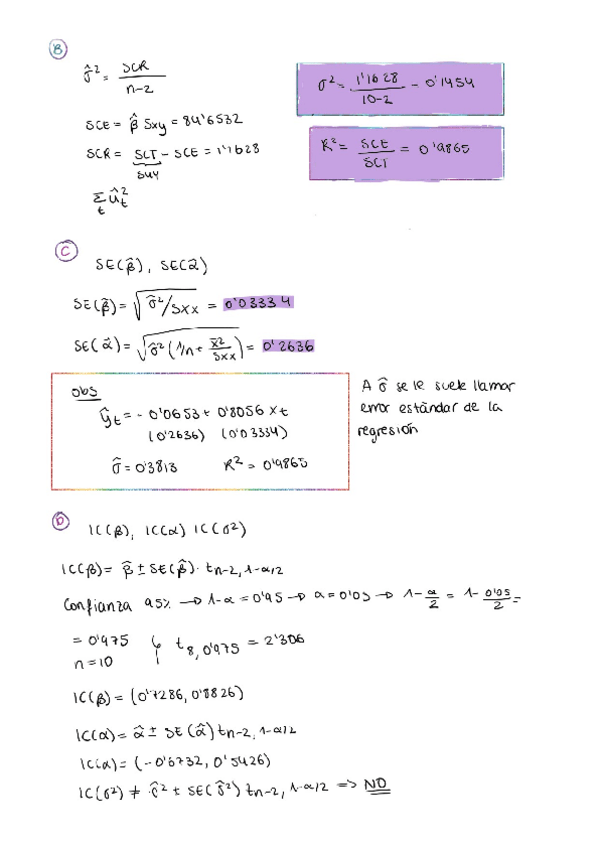 B
σ̂² = SCR / n-2
σ² = 1'1628 / 10-2 - 0'1454
SCE = β̂ Sxy = 84'6532
SCR = SCT - SCE = 1'1628
Suy
R² = SCE / SCT = 0'9865
Σ û²t
t
C
SE(β̂), SE(α̂)
SE(β̂) = √σ̂²/Sxx = 0'03334
SE(α̂) = √σ̂² (1/n + x̄²/Sxx) = 0'2636
obs
ŷt = - 0'0653 + 0'8056 xt
(0'2636) (0'03334)
σ̂ = 0'3813 R² = 0'9865
A σ̂ se le suele llamar
error estándar de la
regresión
D
IC(β), IC(α) IC(σ²)
IC(β) = β̂ ± SE(β̂) · tn-2, 1-α/2
Confianza 95% → 1-α = 0'95 → α = 0'05 → 1- α/2 = 1- 0'05/2 =
= 0'975 t8, 0'975 = 2'306
n = 10
IC(β) = (0'7286, 0'8826)
IC(α) = α̂ ± SE(α̂) tn-2, 1-α/2
IC(α) = (-0'6732, 0'5426)
IC(σ²) ≠ σ̂² ± SE(σ̂²) tn-2, 1-α/2 => NO